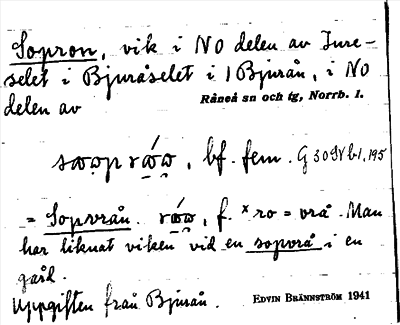 Sopron, vik i NO delen av Jure-
selet i Bjuråselet i 1 Bjurån, i NO
delen av
Råneå sn och tg, Norrb. l.
bf. fem. G 309 V b 1, 195
= Sopvrån. f. ˣro = vrå. Man
har liknat viken vid en sopvrå i en
gård.
Uppgiften från Bjurån. EDVIN BRÄNNSTRÖM 1941